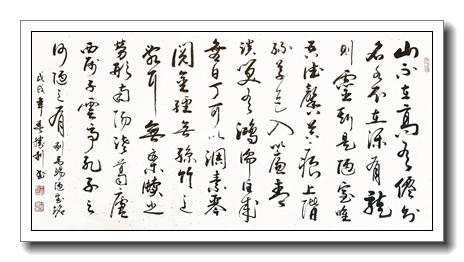 山不在高有僊則
名水不在深有龍
則靈斯是陋室唯
吾德馨苔痕上階
綠草色入簾青
談笑有鴻儒往來
無白丁可以調素琴
閱金經無絲竹之
亂耳無案牘之
勞形南陽諸葛廬
西蜀子雲亭孔子云
何陋之有 劉禹錫陋室銘
戊戌年李勝利書